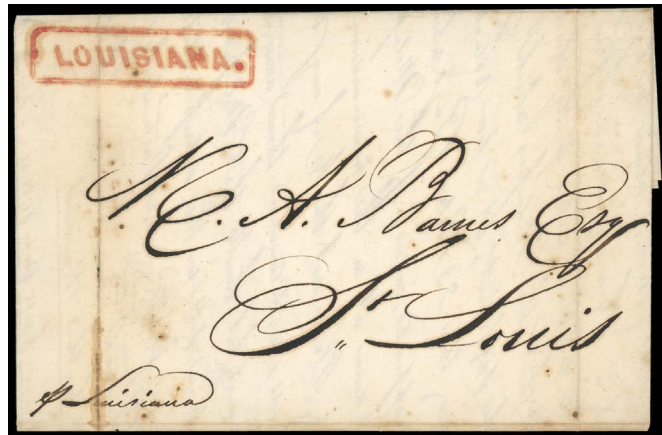 LOUISIANA.
A. Barnes Esq
St Louis
pr Louisiana